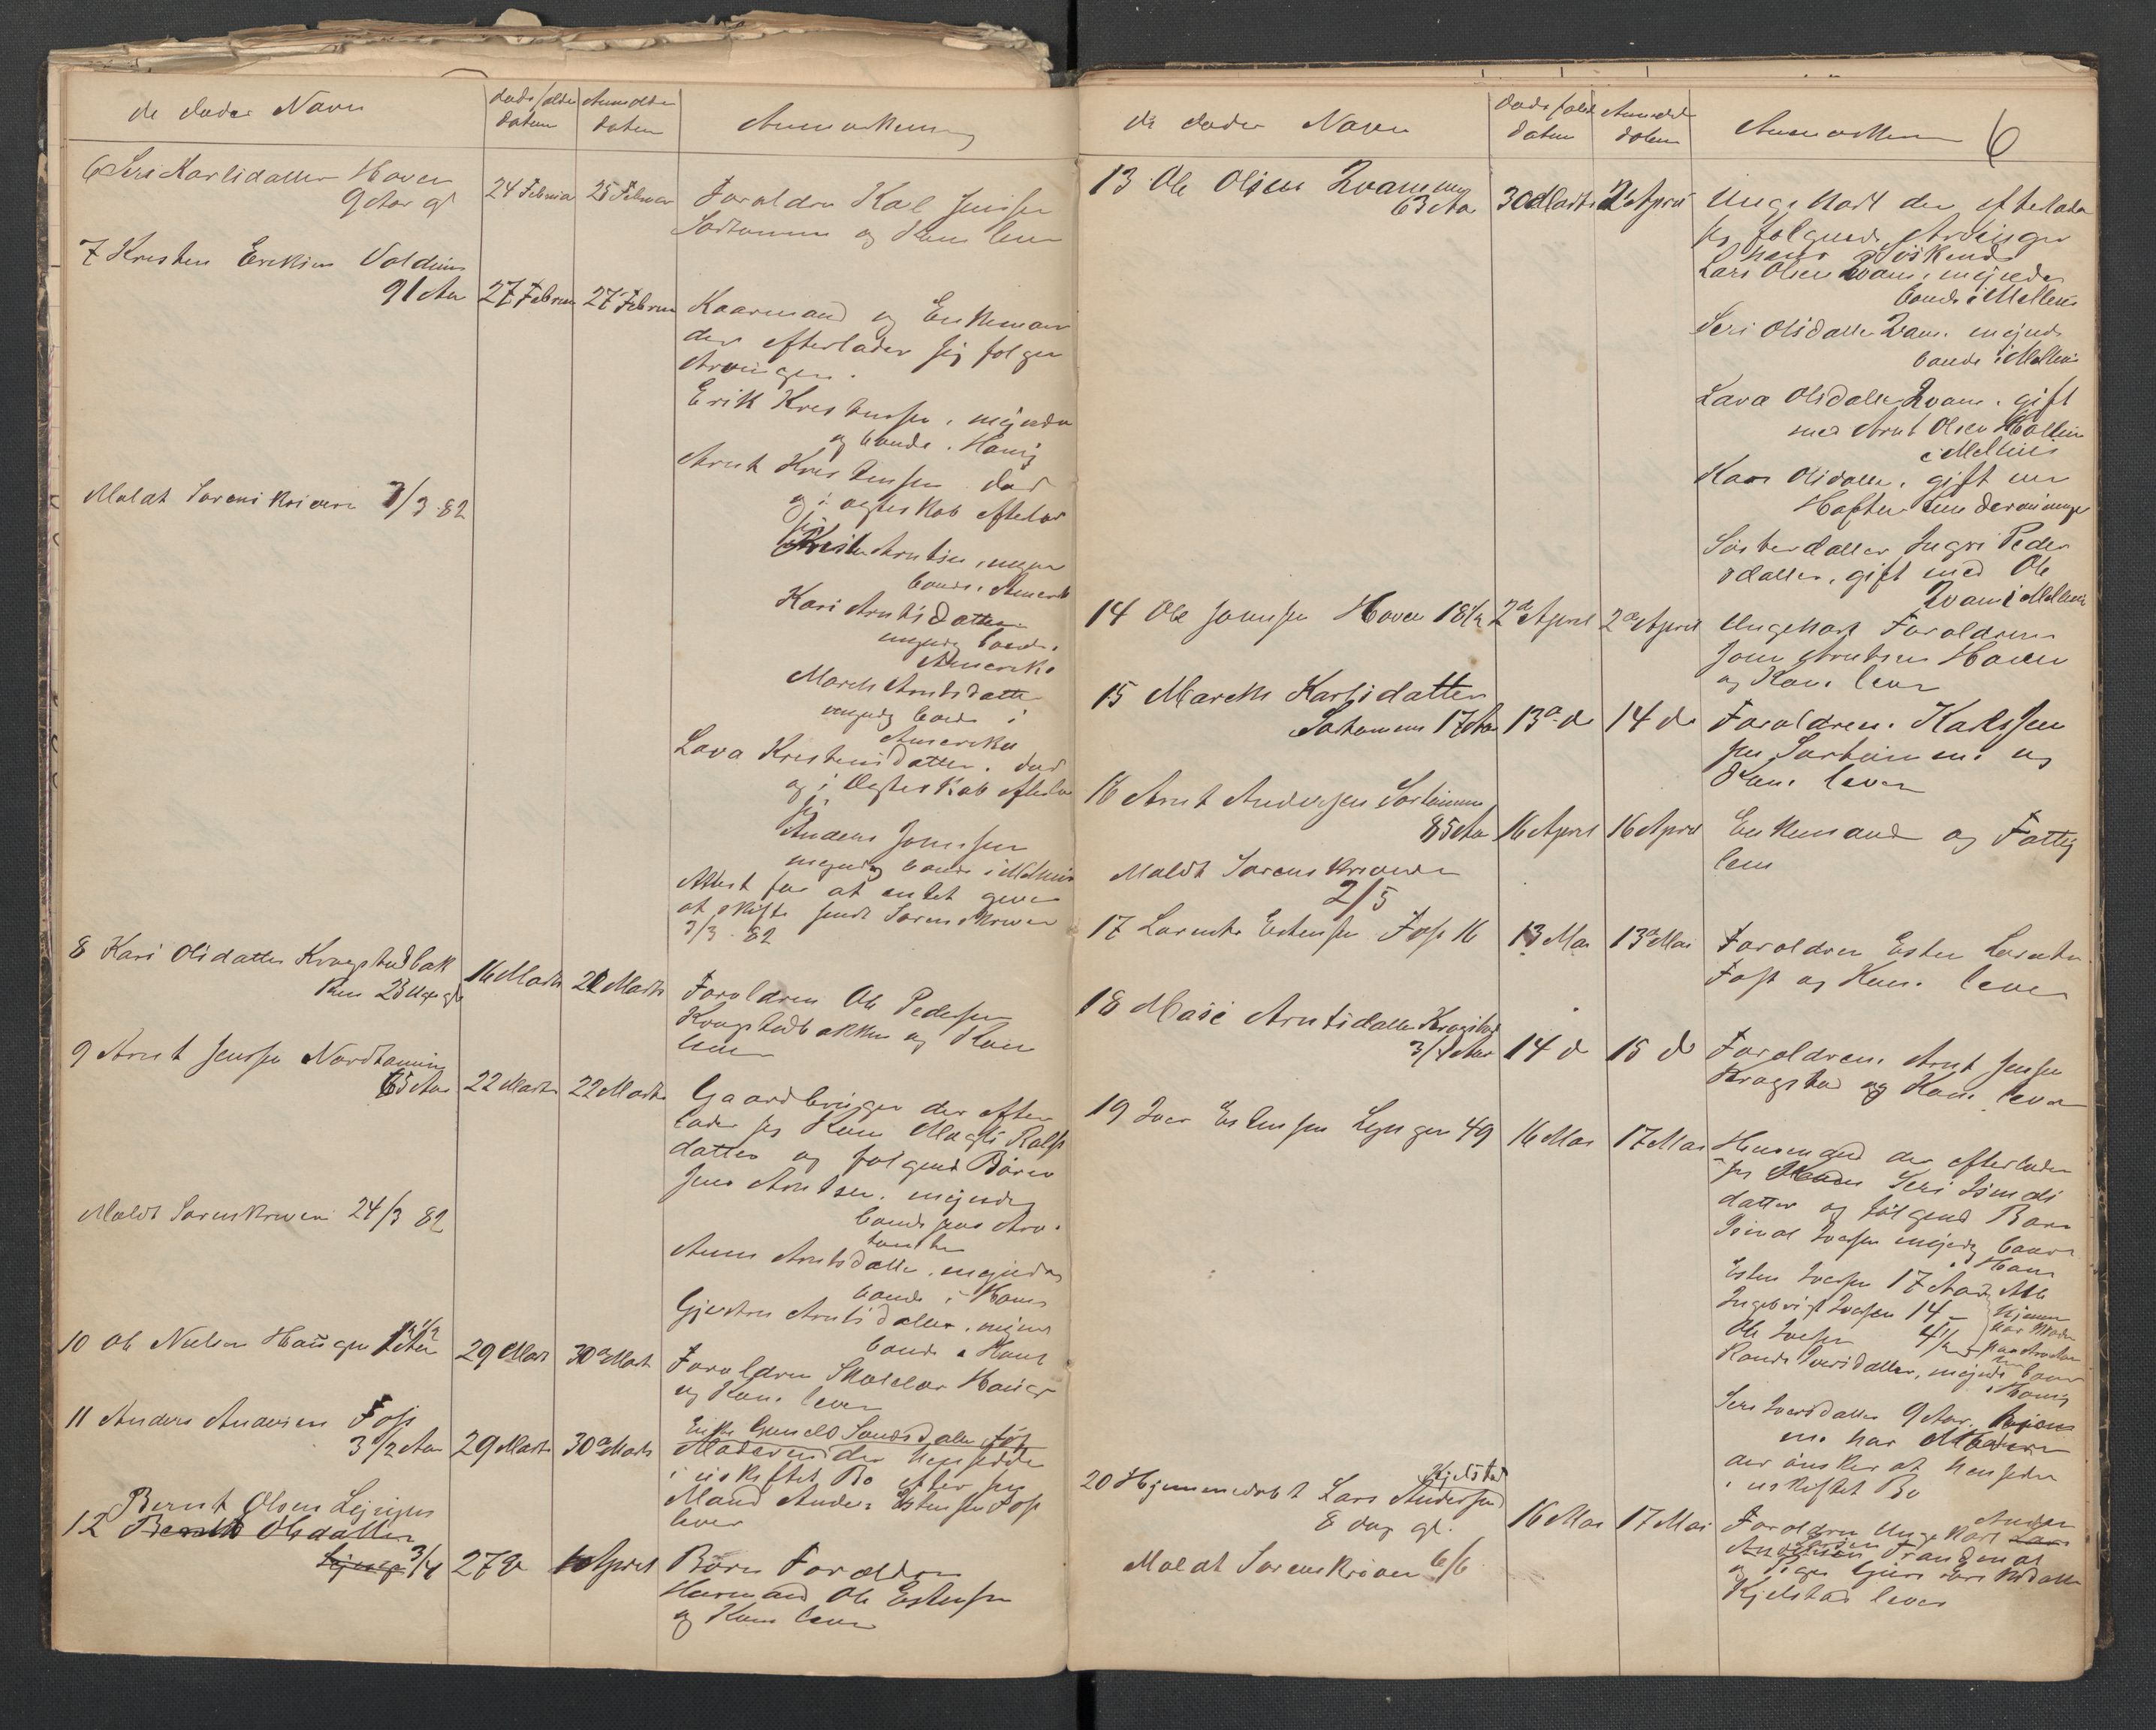 de dødes Navn
døds falds datum
Anmeldes datum
Anmerkning
6 Seri Karlsdatter Haven
9 Aar gl
24 Februar
25 Februar
Foraldre Karl Jenssen
Sørtømme og Kone lever
7 Kresten Eriksen Voldeim
91 Aar
27 Februar
27 Februar
Kaarmand og Enkemand
der efterlader sig følgen
Arvinger.
Erik Krestensen, mÿndi
og boende i Haus
Arnt Krestensen død
og i egteskab efterlat
sig
Kresten Arntsen, mynd
boende i Amerika
Kari Arntsdatter
myndig boende i
Amerika
Mareth Arntsdatte
myndig boende i
Amerika
Lava Krestensdatter. død
og i Ægteskab efterlat
sig
Anders Jonsen
myndig boende i Melhus
Attest for at entet giver
at skifte sendt Sorenskriver
3/3 82
Meldt Sorenskriveren 3/3 82
8 Kari Olsdatter Kragstadbak
ken 23 Uger gl
16 Marts
21 Marts
Foraldren Ole Pedersen
Kragstadbakken og Kone
lever
9 Arnt Jenssen Nordtømme
65 Aar
22 Marts
22 Marts
Gaardbruger der efter
lader sig Kone Magli Rolfs
datter og følgend Børn
Jens Arntsen. mÿndig
boende paa Arn
tomten
Anne Arntsdatte. mÿndig
boende i Haus
Gjertru Arntsdatter. mynd
boende i Haus
Meldt Sorenskriveren 24/3 82
10 Ole Nielsen Haugen 1 1/2
Aar
29 Mart
30 Mart
Foraldren Skolelær Hauger
og Kone lever
11 Anders Andersen Foss
3 1/2 Aar
29 Marts
30 Marts
Enke Gunild Sandsdatter Foss
Moderen der hensidder
i uskiftet Bo efter sin
Mand Anders Estensen Foss
lever
Bernt Olsen Løjnges
12 Berith Olsdatter
3/4
27 d
1 April
Børn Foraldre
Husmand Ole Estensen
og Kone lever
de dødes Navn
døds fald datum
Anmeldt datum
Anmerkn
6
13 Ole Olsen Kvamme
63 Aar
30 Marts
2 April
Ungekarl der efterlader
sig følgende Arvinger
hans Søskende
Lars Olsen Kvam. mÿndig
boende i Melhus
Seri Olsdatter Kvam. mÿndi
boende i Melhus
Lava Olsdatter Kvam. gift
med Arnt Olsen Hollum
i Melhus
Kari Olsdatter. gift
Søsterdatter Ingri Peder
sdatter. gift med Ole
Kvam i Melhus
14 Ole Jonsen Haven 18 Aar
2d April
2d April
Ungekarl Foraldren
Jon Arntsen Haven
og Kone lever
15 Mareth Karlsdatter
Sørtømme 17 Aar
13 de
14 de
Foraldren. Karl Jens
sen Sørtømme. og
Kone lever
16 Arnt Andersen Sørtømme
85 Aar
16 April
16 April
Enkemand og Fattig
lem
Meldt Sorenskriveren
2/5
17 Larents Estensen Foss 16
13 Mai
13 Mai
Foraldren Esten Larents
Foss og Kone lever
18 Mase Arntsdatter Kragstad
3/4 Aar
14 d
15 d
Foraldren. Arnt Jensen
Kragstad og Kone lever
19 Iver Estensen Lynger 49
16 Mai
17 Mai
Husmand der efterlader
sig Kone Seri Simdi
datter og følgend Barn
Simol Iversen mÿndig boend
i Haus
Esten Iversen 17 Aar Alle
Ingebrigt Iversen 14 –
Ole Iversen 4 1/2
hjemme
hos Moder
paa Arntom
ten
Rande Iversdatter, mÿndi boen
i Haus
Seri Iversdatter 9 Aar. hjem
me. hos Moderen
der ønsker at hensidde
i uskiftet Bo
20 Hjemmedøbt Lars Andersen
Kjelstad
8 dag gl.
16 Mai
17 Mai
Foraldren Ungekarl Lars
Anders
Andersen Trandmot
og Pige Guri Larsdatter
Kjelstad lever
Meldt Sorenskriver 6/6